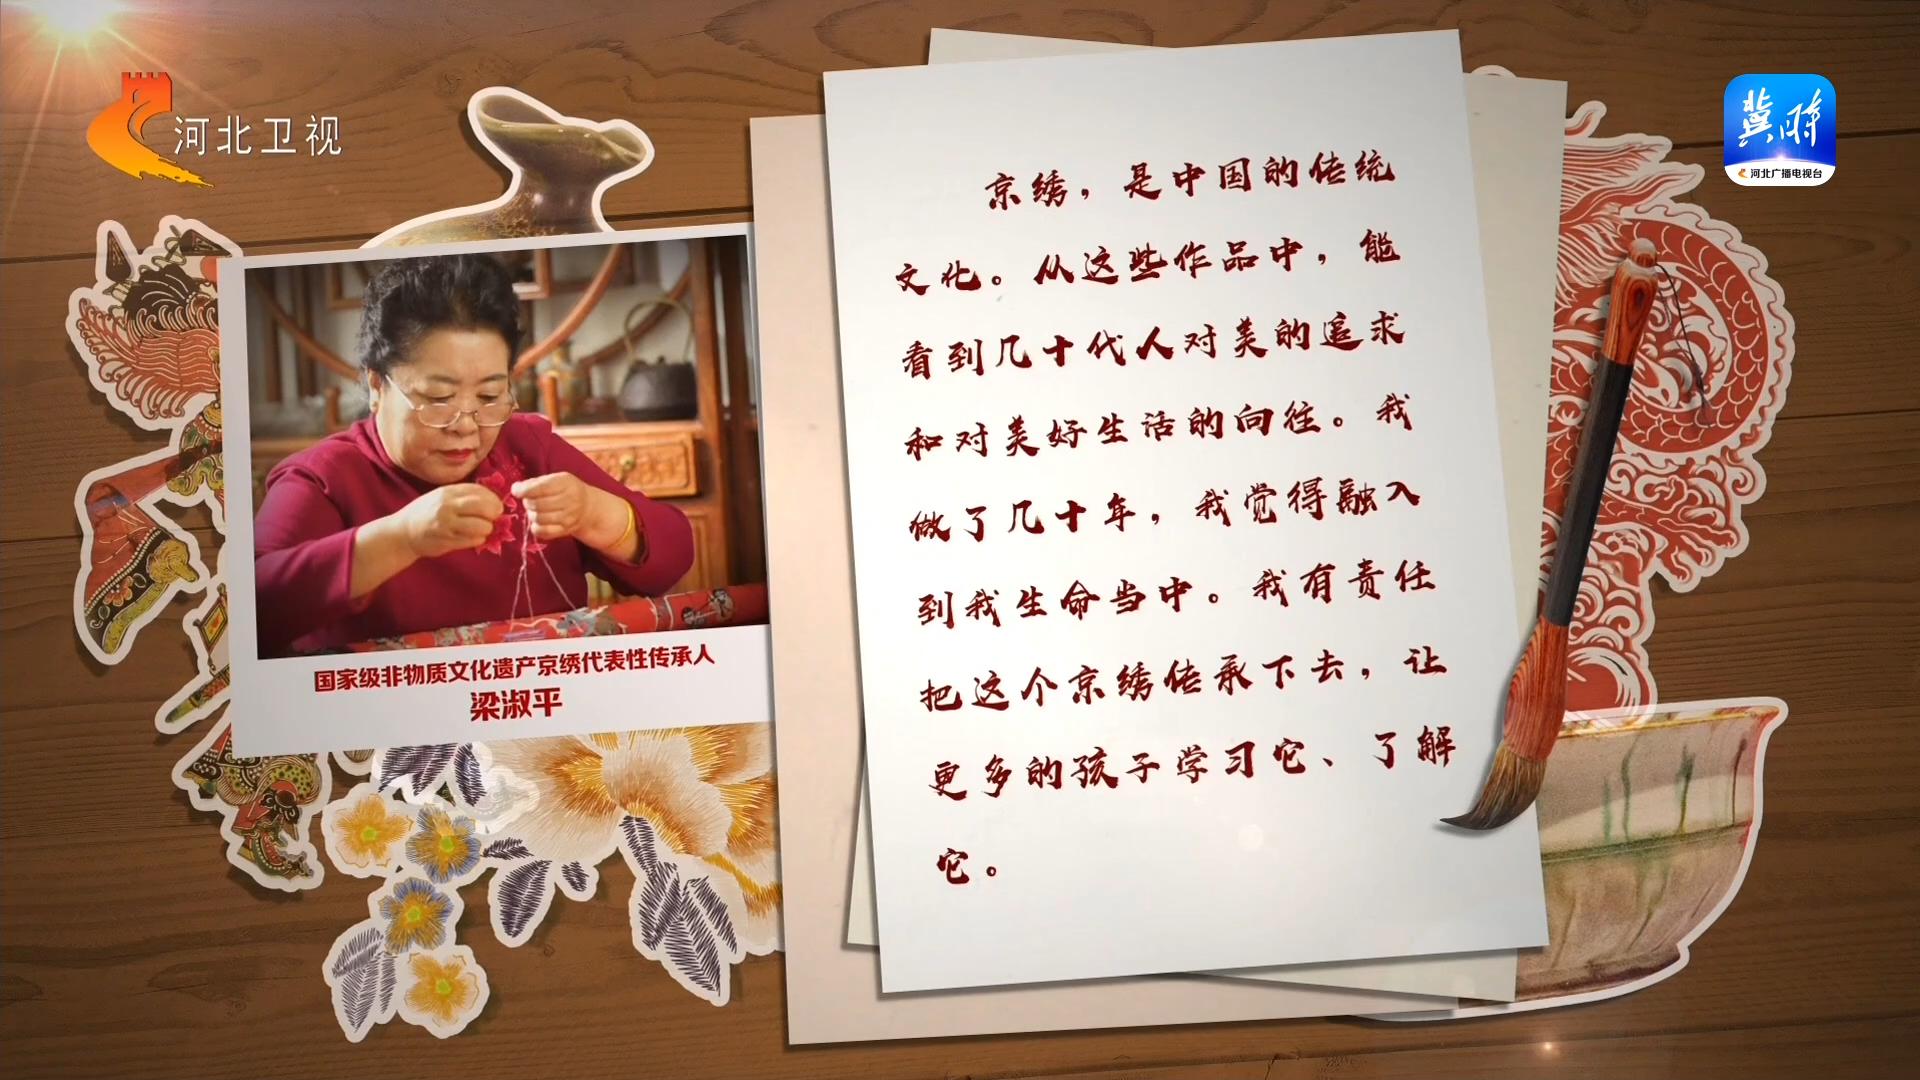 河北卫视
冀时
河北广播电视台
京绣，是中国的传统
文化。从这些作品中，能
看到几十代人对美的追求
和对美好生活的向往。我
做了几十年，我觉得融入
到我生命当中。我有责任
把这个京绣传承下去，让
更多的孩子学习它、了解
它。
国家级非物质文化遗产京绣代表性传承人
梁淑平